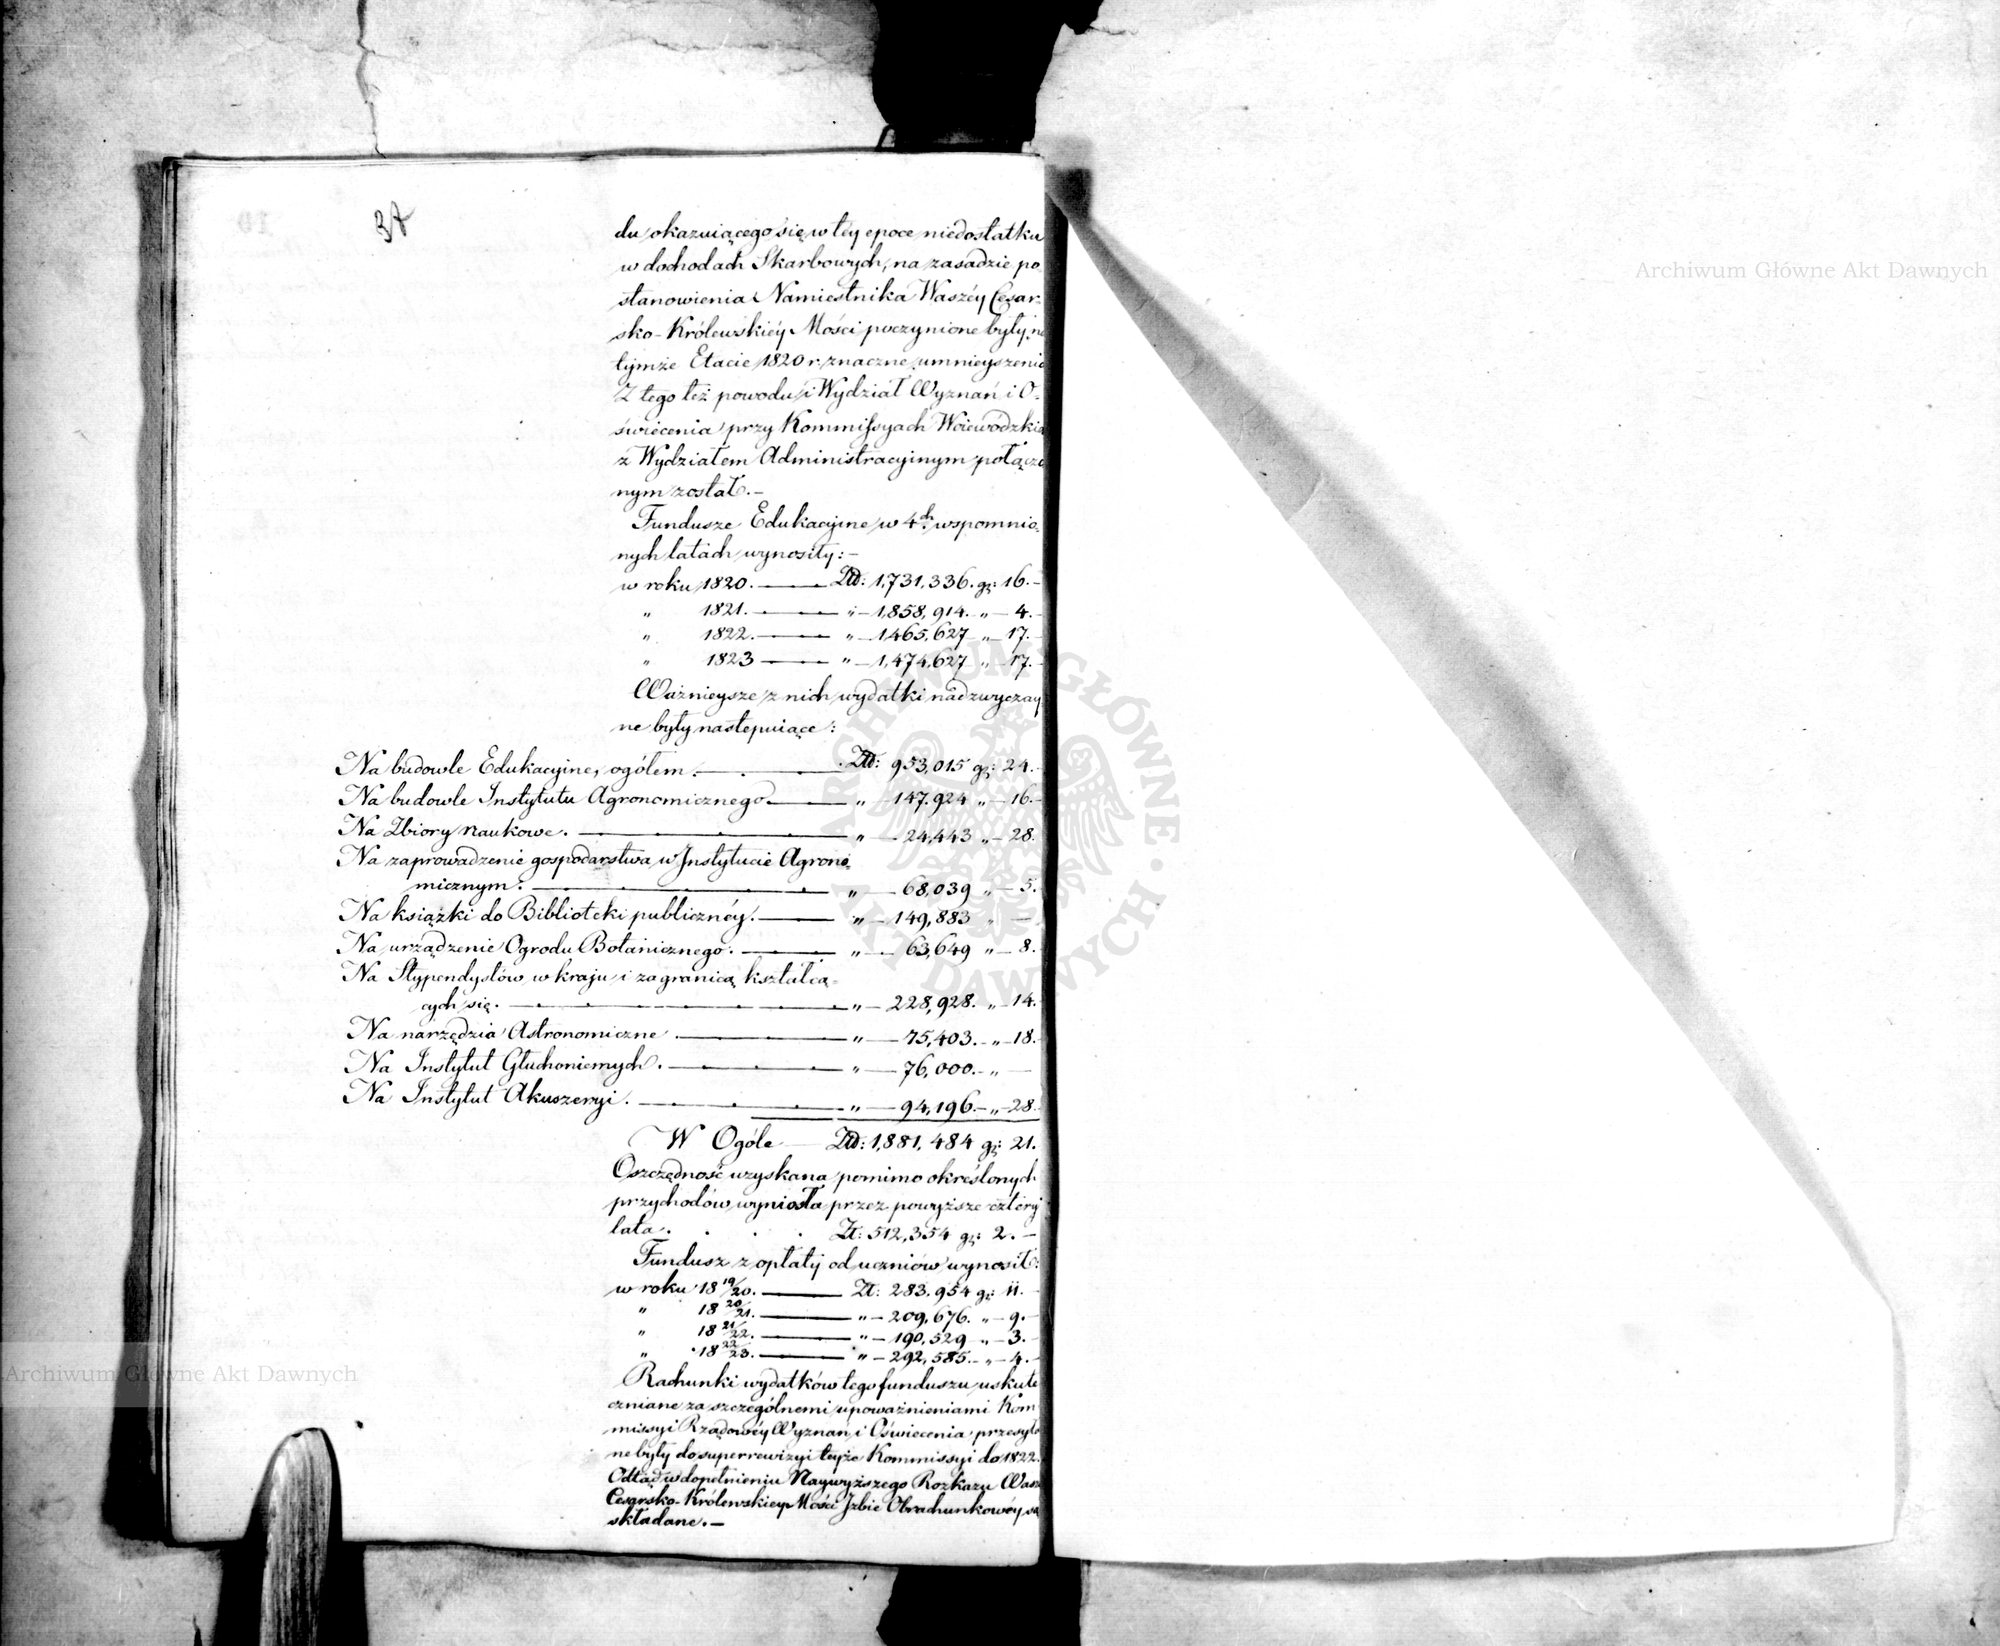 37
du okazuiącego się w tey epoce niedostatku
w dochodach Skarbowych, na zasadzie po-
stanowienia Namiestnika Waszéy Cesar-
sko-Królewskiéy Mości poczynione były na
tymże Etacie 1820 r. znaczne umnieyszenia
Z tego też powodu i Wydział Wyznań i O-
świecenia przy Kommissyach Woiewódzkich
z Wydziałem Administracyinym połączo
nym został.-
Fundusze Edukacyine w 4ch wspomnio-
nych latach wynosiły:-
w roku 1820. — Złł: 1,731,336. gr: 16.-
„ 1821. — „ - 1,858,914. „ - 4.-
„ 1822. — „ - 1,465,627 „ - 17.-
„ 1823 — „ - 1,474,627 „ - 17.-
Ważnieysze z nich wydatki nadzwyczay
ne były następuiące:
Na budowle Edukacyine, ogółem. — Złł: 953,015 gr: 24.-
Na budowle Instytutu Agronomicznego — „ - 147,924 „ - 16.-
Na Zbiory naukowe. — „ - 24,443 „ - 28.
Na zaprowadzenie gospodarstwa w Instytucie Agrono-
micznym. — „ - 68,039 „ - 5.
Na książki do Biblioteki publicznéy. — „ - 149,883 „ —
Na urządzenie Ogrodu Botanicznego. — „ - 63,649 „ - 8.
Na Stypendystów w kraju i zagranicą kształcą-
cych się. — „ - 228,928. „ - 14.
Na narzędzia Astronomiczne — „ - 75,403. - „ - 18.
Na Instytut Głuchoniemych. — „ - 76,000. - „ —
Na Instytut Akuszeryi. — „ - 94,196. - „ - 28.
W Ogóle — Złł: 1,881,484 gr: 21.
Oszczędność uzyskana pomimo określonych
przychodów wyniosła przez powyższe cztéry
lata. . . . Zł: 512,354 gr: 2.-
Fundusz z opłaty od uczniów wynosił:
w roku 18 19/20. — Zł: 283.954 gr: 11.-
„ 18 20/21. — „ - 209,676. „ - 9.-
„ 18 21/22. — „ - 190,529 „ - 3.-
„ 18 22/23. — „ - 292,585. - „ - 4.-
Rachunki wydatków tego funduszu uskute
czniane za szczególnemi upoważnieniami Kom
missyi Rządowéy Wyznań i Oświecenia przesyła
ne były do superrewizyi teyże Kommissyi do 1822.
Odtąd w dopełnieniu Naywyższego Rozkazu Wasz
Cesarsko-Królewskiey Mości Izbie Obrachunkowéy są
składane.-
Archiwum Główne Akt Dawnych
Archiwum Główne Akt Dawnych
ARCHIWUM GŁÓWNE · AKT DAWNYCH ·